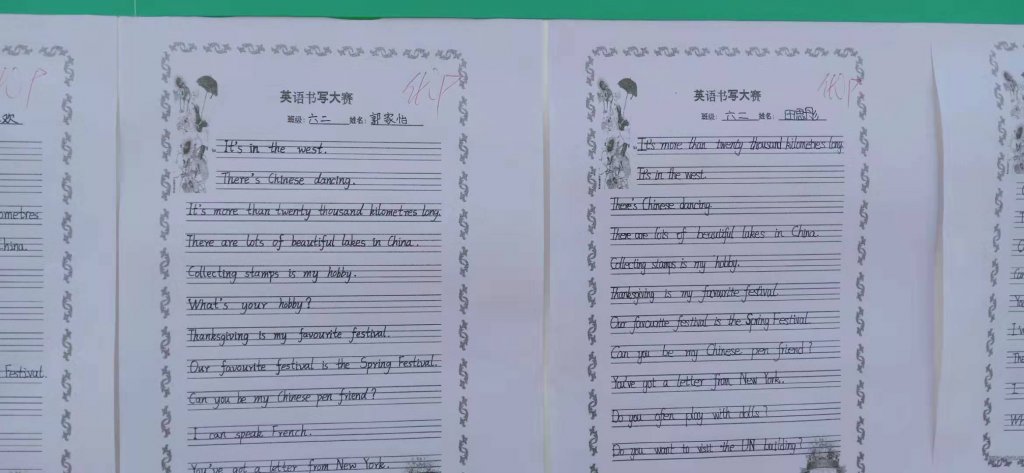 欢
ometres
hina.
Festival.
优P
英语书写大赛
班级: 六二 姓名: 郭家怡
It's in the west.
There's Chinese dancing.
It's more than twenty thousand kilometres long.
There are lots of beautiful lakes in China.
Collecting stamps is my hobby.
What's your hobby?
Thanksgiving is my favourite festival.
Our favourite festival is the Spring Festival.
Can you be my Chinese pen friend?
I can speak French.
You've got a letter from New York.
优P
英语书写大赛
班级: 六二 姓名: 田
It's more than twenty thousand kilometres long.
It's in the west.
There's Chinese dancing.
There are lots of beautiful lakes in China.
Collecting stamps is my hobby.
Thanksgiving is my favourite festival.
Our favourite festival is the Spring Festival.
Can you be my Chinese pen friend?
You've got a letter from New York.
Do you often play with dolls?
Do you want to visit the UN building?